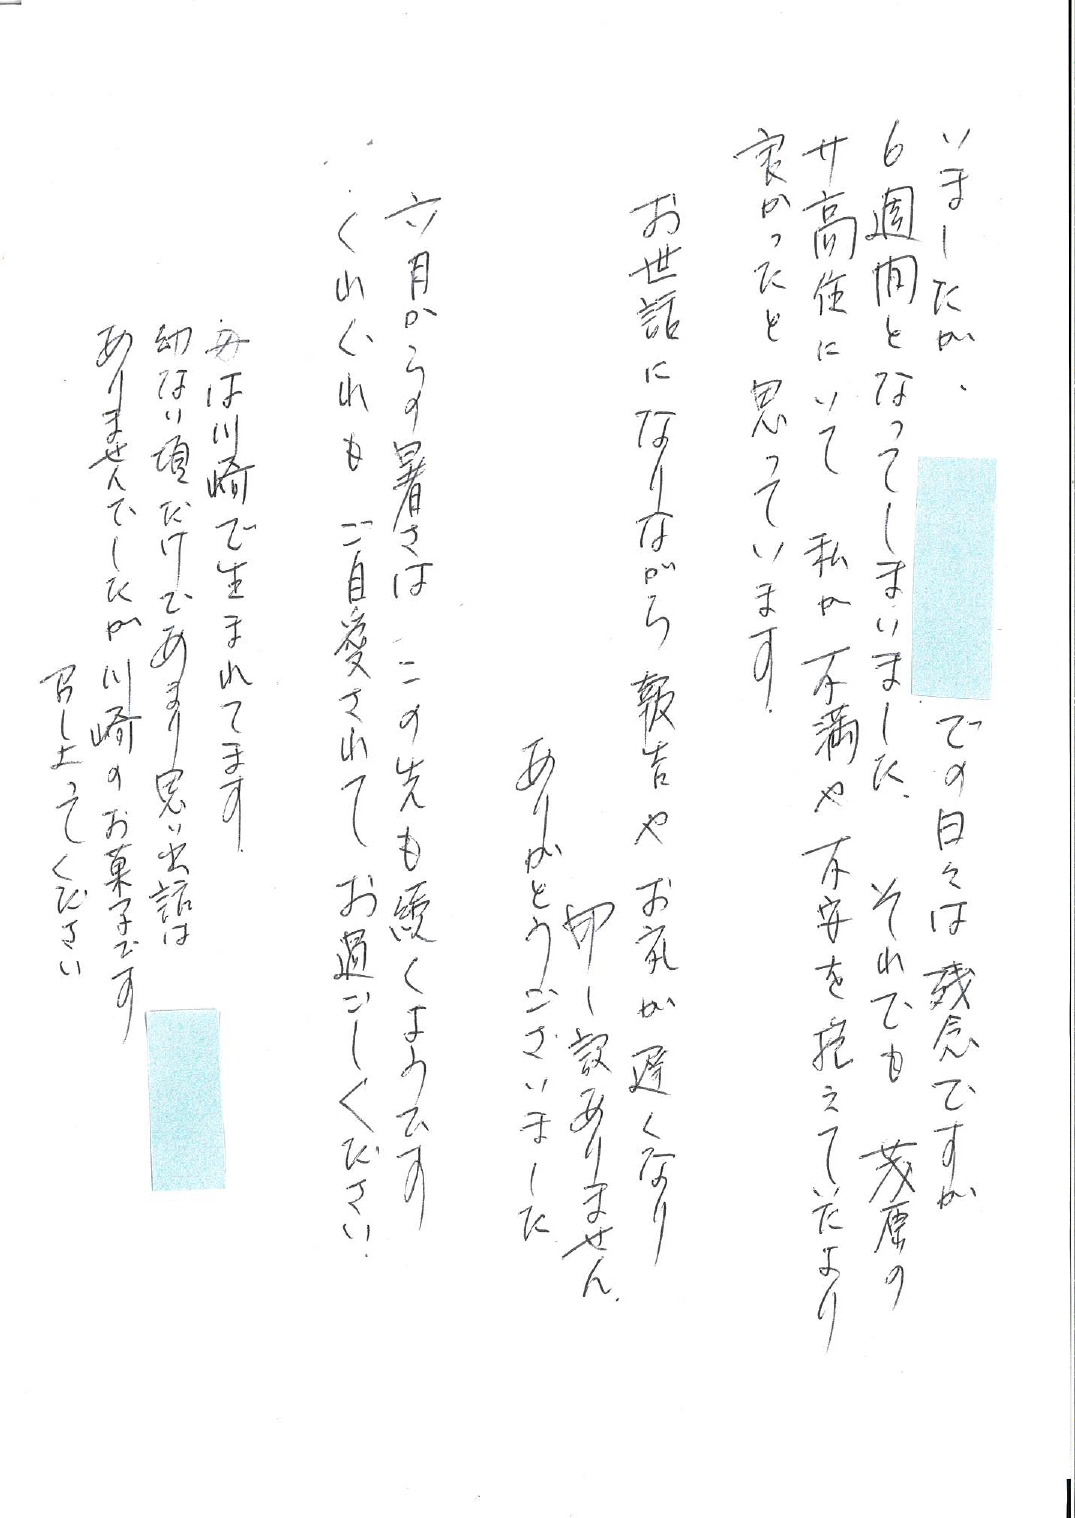 いましたが、
での日々は残念ですが
6週間となってしまいました。それでも 茂原の
サ高住にいて 私が不満や不安を抱えていたより
良かったと思っています。
お世話になりながら報告やお礼が遅くなり
申し訳ありません。
ありがとうございました
六月からの暑さは この先も続くようです
くれぐれも ご自愛されて お過ごしください。
母は川崎で生まれてます。
幼ない頃だけであまり思い出話は
ありませんでしたが川崎のお菓子です
召し上ってください